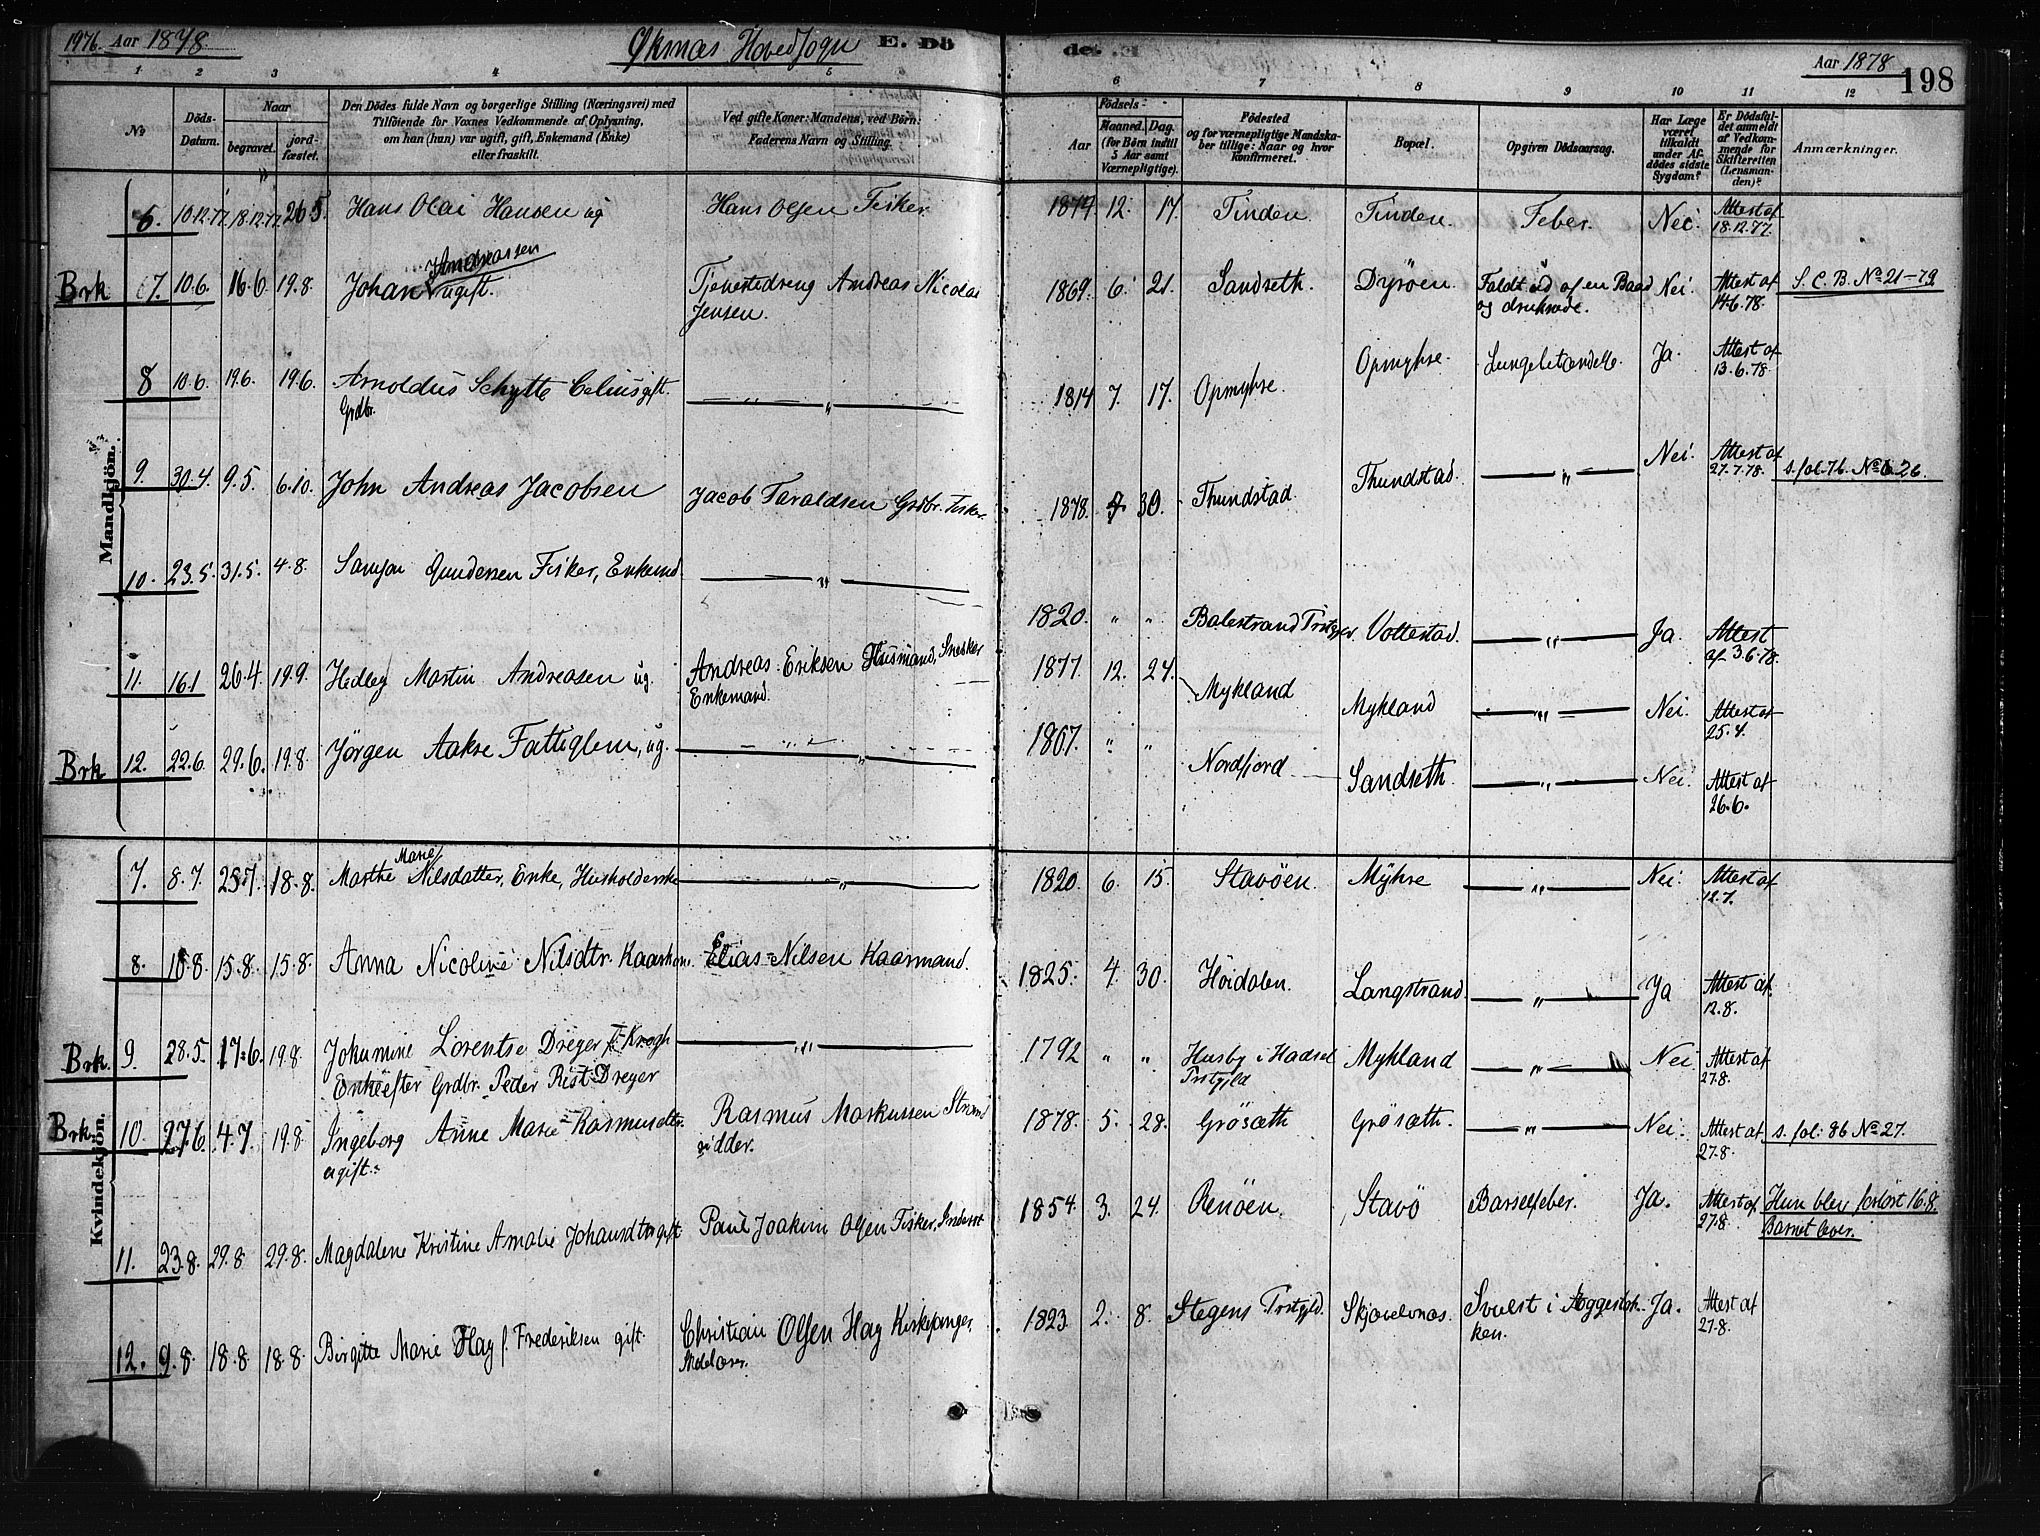 197b. Aar 1878
Øksnæs Hovedsogn E. Dö
de.
Aar 1878
198
1 2 3 4 5 6 6 7 8 9 10 11 12
No
Döds-Datum.
Naar
begravet.
jord-fæstet.
Den Dödes fulde Navn og borgerlige Stilling (Næringsvei) med
Tilföiende for Voxnes Vedkommende af Oplysning,
om han (hun) var ugift, gift, Enkemand (Enke)
eller fraskilt.
Ved gifte Koner: Mandens, ved Börn:
Faderens Navn og Stilling.
Födsels-
Aar
Maaned. Dag.
(for Börn indtil
5 Aar samt
Værnepligtige).
Födested
og for værnepligtige Mandska-
ber tillige: Naar og hvor
Konfirmeret.
Bopæl.
Opgiven Dödsaarsag.
Har Læge
været
tilkaldt
under Af-
dödes sidste
Sygdom?
Er Dödsfal-
det anmeldt
af Vedkom-
mende for
Skifteretten
(Lensman-
den)?
Anmærkninger.
Mandkjön.
6. 10.12.77. 18.12.77. 26.5 Hans Olai Hansen ug Hans Olsen Fisker 1874 12. 17. Tinden. Tinden. Feber. Nei. Attest af
18.12.77.
Andreassen
Brk 7. 10.6. 16.6 19.8. Johan ugift. Tjenestedreng Andreas Nicolai 1869. 6. 21. Sandseth. Dyröen. Faldt ud af en Baad Nei. Attest af S. C. B. No 21-79
Jensen. og druknede. 14.6.78.
8 10.6. 19.6. 19.6. Arnoldus Schytte Celius gift. — " — 1814 7. 17. Opmyhre. Opmyhre. Lungebetændelse. Ja. Attest af
Grdbr. 13.6.78.
9. 30.4. 9.5. 6.10. John Andreas Jacobsen Jacob Taraldsen Grdbr. Fisker 1878. 30. Thundstad. Thundstad. — " — Nei. Attest af s. fol. 76. No 26.
27.7.78.
10. 23.5. 31.5. 4.8. Samson Gundersen Fisker, Enkemd. — " — 1820. " " Balestrand Prstgjd. Vottestad. — " — Ja. Attest
af 3.6.78.
11. 16.1 26.4. 19.9. Hedley Martin Andreasen ug. Andreas Eriksen Husmand, Snekker 1877. 12. 24. Mykland Mykland — " — Nei. Attest af
Enkemand. 25.4.
Brk 12. 22.6. 29.6. 19.8 Jørgen Aakre Fattiglem, ug. — " — 1867. " " Nordfjord — Sandseth. — " — Nei. Attest af
26.6.
Kvindekjön.
Marie
7. 8.7. 25.7 18.8. Marthe Nilsdatter, Enke, Husholderske — " — 1820. 6. 15. Stavöen. Myhre — " — Nei. Attest af
12.7.
8. 10.8. 15.8. 15.8. Anna Nicoline Nilsdtr. Kaarkone. Elias Nilsen Kaarmand. 1825. 4. 30. Höidalen. Langstrand. — " — Ja Attest af.
12.8.
Brk. 9. 28.5. 17.6. 19.8. Johannine Lorentse Dreyer f. Krogh — " — 1792 " " Husby i Hadsel Mykland — " — Nei Attest af
Enke efter Grdbr. Peder Rist Dreyer Prstgjld 27.8.
Brk. 10. 27.6. 4.7 19.8. Ingeborg Anne Marie Rasmusdtr. Rasmus Markussen Strand 1878. 5. 28. Grösæth Grösæth. — " — Nei. Attest af s. fol: 86 No 27.
ugift. sidder. 27.8.
11. 23.8. 29.8 29.8. Magdalene Kristine Amalie Johansdtr gift Paul Joakim Olsen Fisker, Inderst 1854. 3. 24. Renöen. Stavö Barselfeber. Ja. Attest af Hun blev forløst 16.8.
27.8. Barnet lever.
12. 9.8. 18.8 18.8. Birgitte Marie Hag f. Frederiksen gift. Christian Olsen Hag Kirkesanger, 1823. 2. 8. Stegens Prstgjld. Skjærelvnæs. Svulst i Æggestok- Ja. Attest af
ken. 27.8.